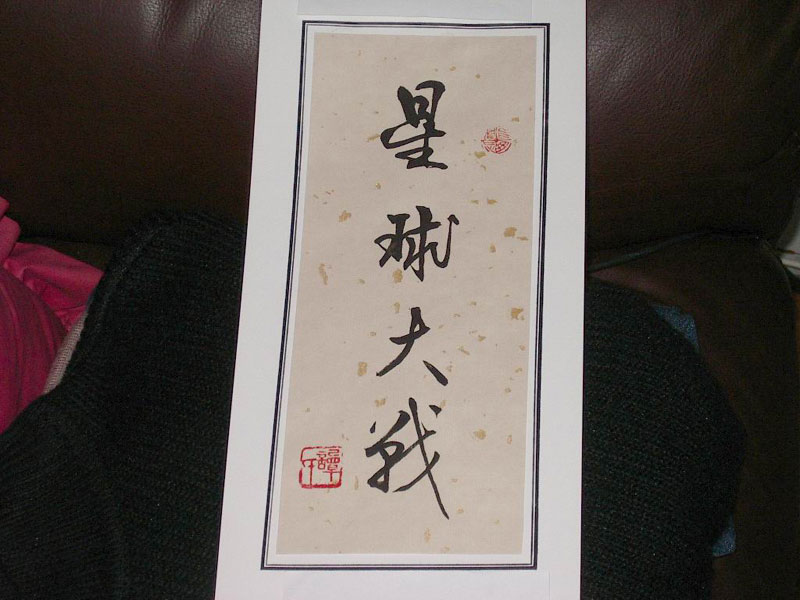 星球大戰
譚